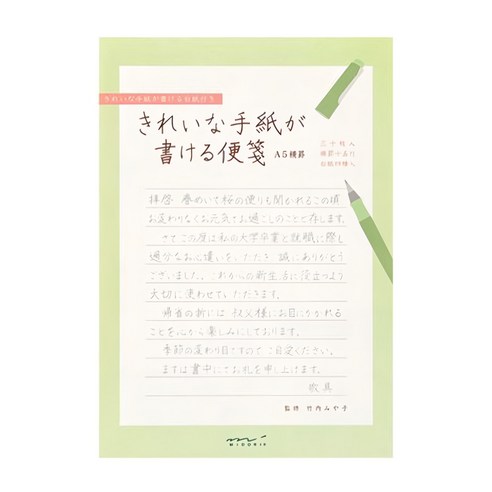 きれいな手紙が書ける台紙付き
きれいな手紙が
書ける便箋 A5横罫
三十枚入
横罫十五行
台紙四種入
拝啓 春めいて桜の便りも聞かれるこの頃
お変わりなくお元気でお過ごしのことと存じます。
さてこの度は私の大学卒業と就職に際し
過分なお心遣いをいただき 誠にありがとう
ございました。これからの新生活に役立つよう
大切に使わせていただきます。
帰省の折には 叔父様にお目にかかれる
ことを心から楽しみにしております。
季節の変わり目ですので、ご自愛ください。
まずは書中にてお礼を申し上げます。
敬具
監修 竹内みや子
MIDORI